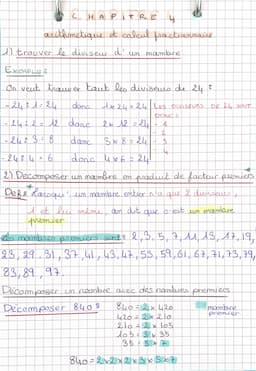 CHAPITRE 4
arithmétique et calcul fractionnaire
1) trouver le diviseur d'un nombre
EXEMPLE :
On veut trouver tout les diviseurs de 24 :
- 24 : 1 = 24 donc 1 x 24 = 24
- 24 : 2 = 12 donc 2 x 12 = 24
- 24 : 3 = 8 donc 3 x 8 = 24
- 24 : 4 = 6 donc 4 x 6 = 24
LES DIVISEURS DE 24 SONT
DONC :
- 1
- 2
- 3
- 4
2) Decomposer un nombre en produit de facteur premiers
DEF : Lorsqu'un nombre entier n'a que 2 diviseurs,
1 et lui même, on dit que c'est un nombre
premier
Les nombres premiers sont : 2, 3, 5, 7, 11, 13, 17, 19,
23, 29, 31, 37, 41, 43, 47, 53, 59, 61, 67, 71, 73, 79,
83, 89, 97.
Décomposer un nombre avec des nombres premiers
Décomposer 840 :
840 = 2 x 420
420 = 2 x 210
210 = 2 x 105
105 = 3 x 35
35 = 5 x 7
nombre
premier
840 = 2 x 2 x 2 x 3 x 5 x 7